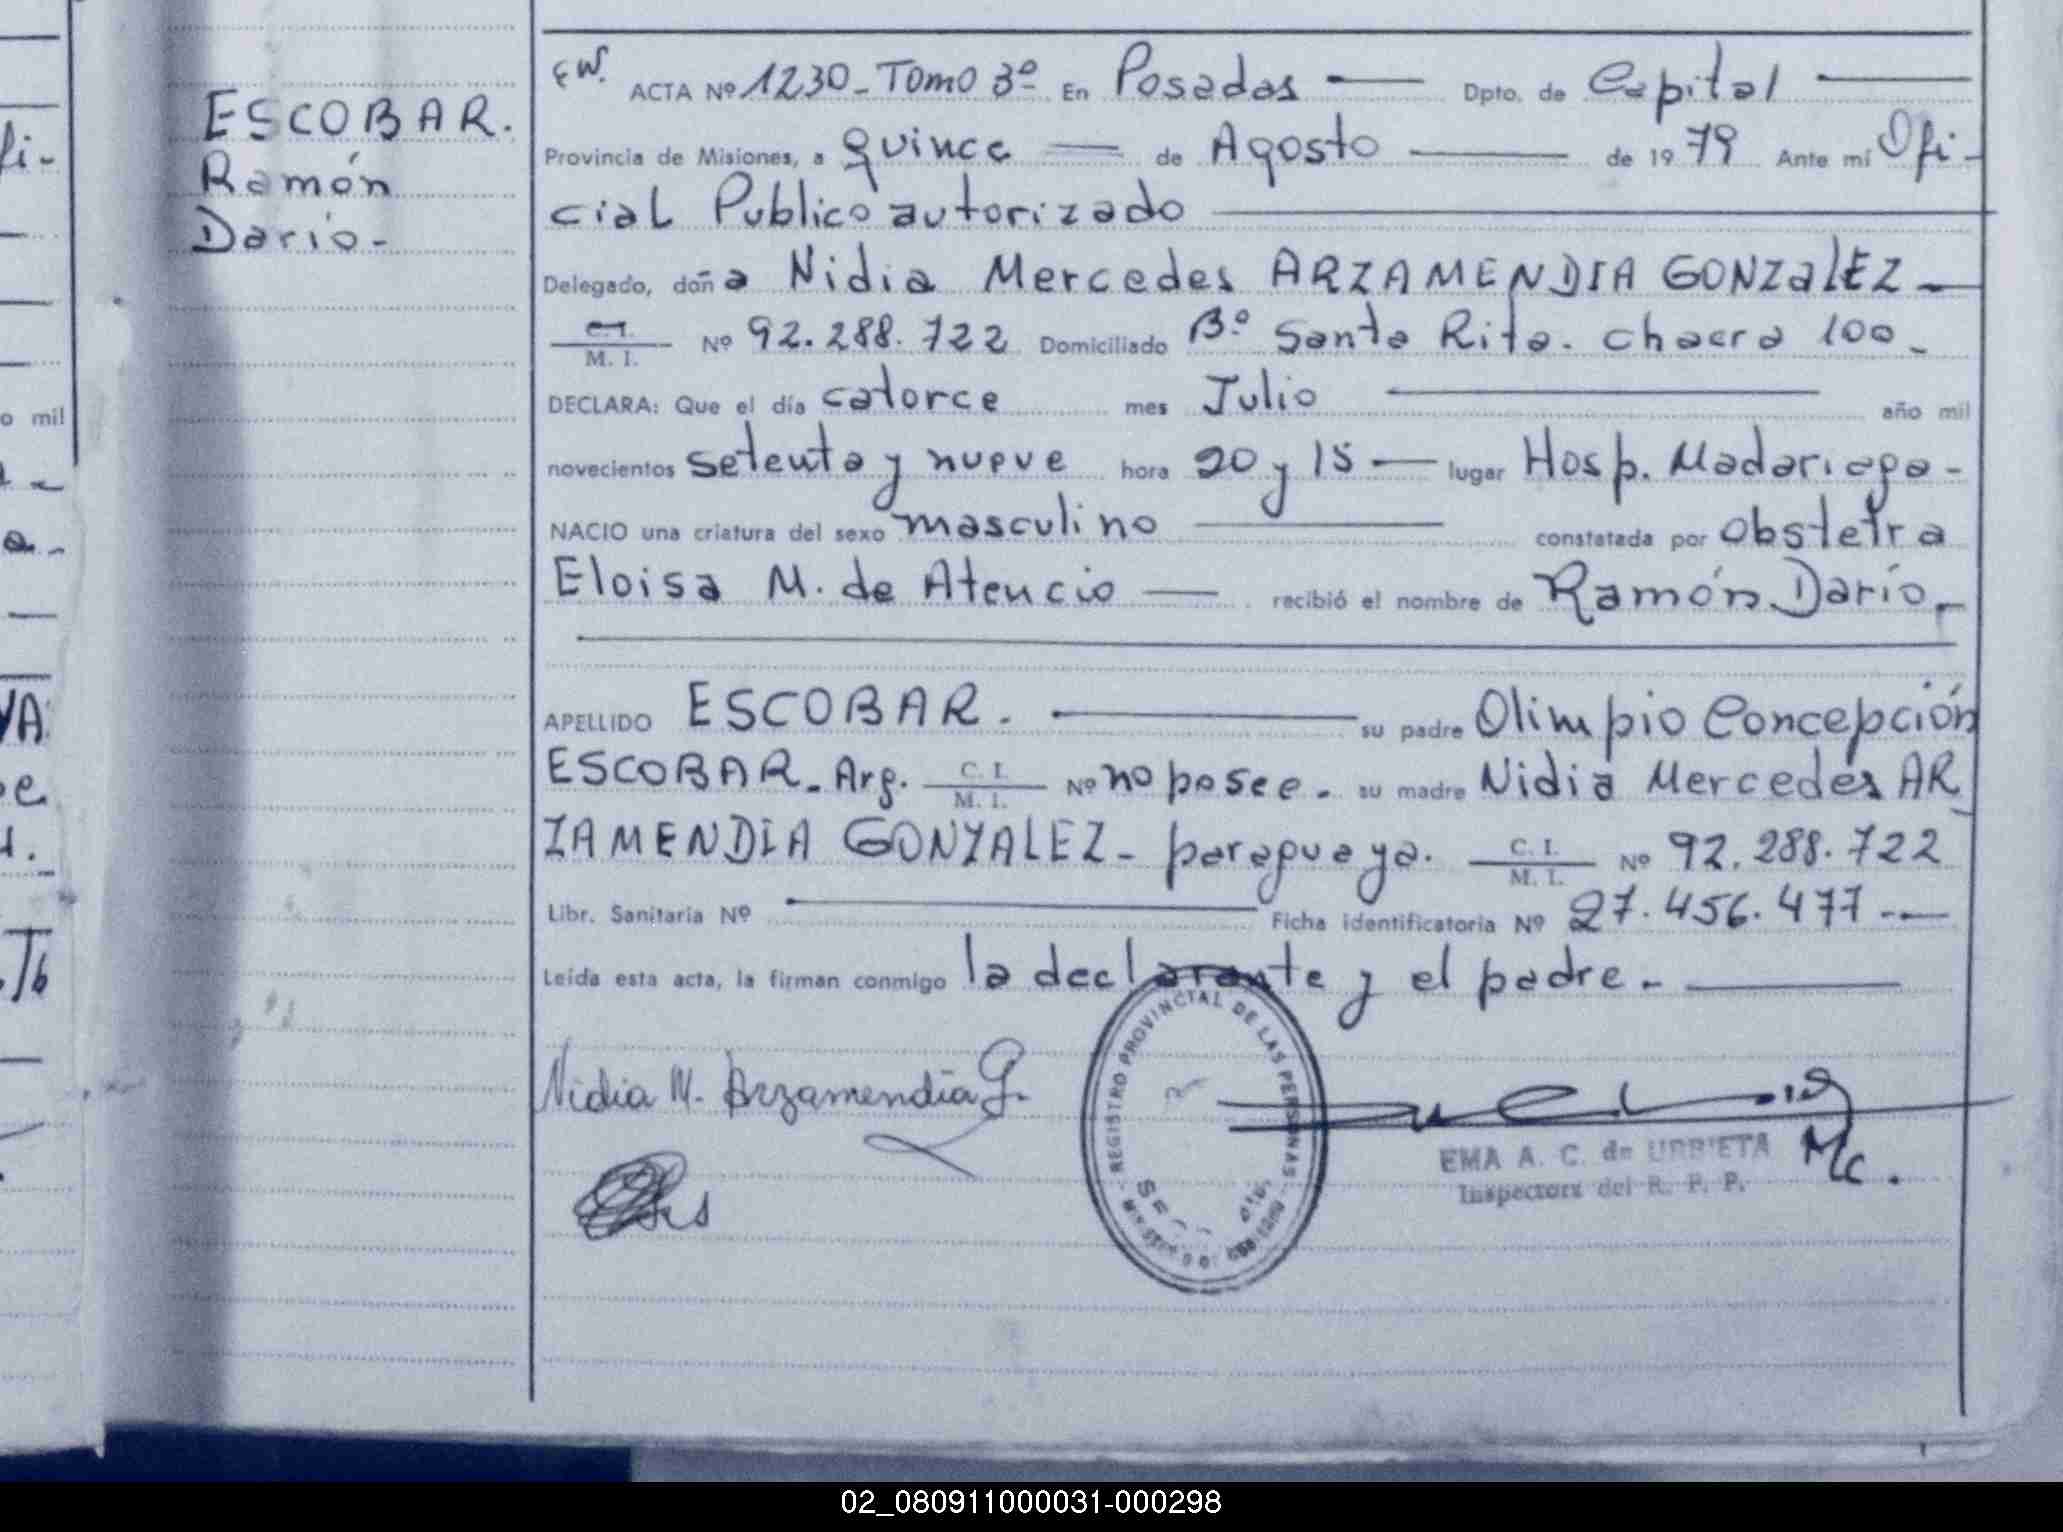 ESCOBAR.
Ramón
Darío-
EW. ACTA Nº 1230-Tomo 3º En Posadas — Dpto. de Capital —
Provincia de Misiones, a quince = de Agosto — de 1979 Ante mí Ofi-
cial Publico autorizado —
Delegado, doña Nidia Mercedes ARZAMENDIA GONZALEZ —
C.I. / M. I. Nº 92.288.722 Domiciliado Bº Santa Rita. chacra 100-
DECLARA: Que el día catorce mes Julio — año mil
novecientos setenta y nueve hora 20 y 15 — lugar Hosp. Madariaga-
NACIO una criatura del sexo masculino — constatada por obstetra
Eloisa M. de Atencio — recibió el nombre de Ramón Darío.-
APELLIDO ESCOBAR. — su padre Olimpio Concepción
ESCOBAR- Arg. C. I. / M. I. Nº no posee. su madre Nidia Mercedes AR
ZAMENDIA GONZALEZ- paraguaya. C. I. / M. I. Nº 92.288.722
Libr. Sanitaria Nº — Ficha identificatoria Nº 27.456.477.-
Leída esta acta, la firman conmigo la declarante y el padre.- —
Nidia M. Arzamendia G.
REGISTRO PROVINCIAL DE LAS PERSONAS
EMA A. C. de URBIETA Mc.
Inspectora del R. P. P.
o mil
02_080911000031-000298